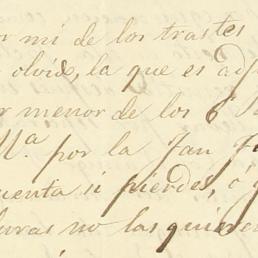 mi de los trastes
olvide, la que es
menor de los 6
M.ª por la Jan
cuenta si pierdes, ó
no las quieren